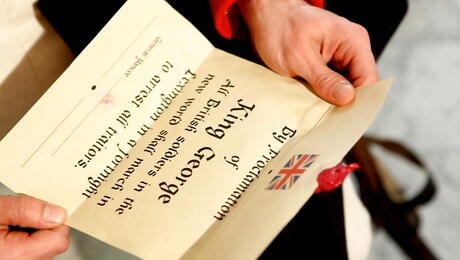 By Proclamation
of
King George
All British soldiers in the
new world shall march in
Lexington in a fortnight
to arrest all traitors.